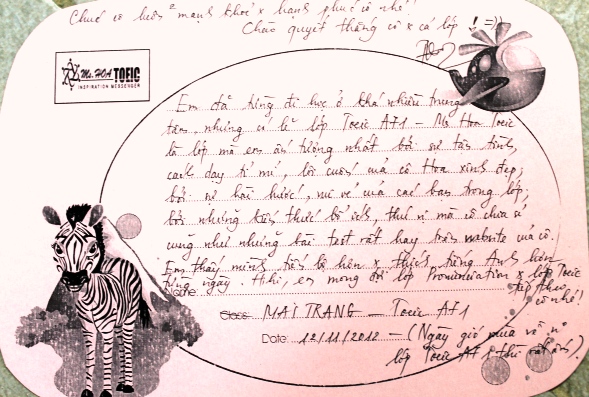 Chúc cô luôn mạnh khoẻ x hạnh phúc cô nhé!
Chào quyết thắng cô x cả lớp! =))
Ms. HOA TOEIC
INSPIRATION MESSENGER
Em đã từng đi học ở khá nhiều trung
tâm, nhưng có lẽ lớp Toeic A71 - Ms Hoa Toeic
là lớp mà em ấn tượng nhất bởi sự tận tình,
cách dạy tỉ mỉ, lôi cuốn của cô Hoa xinh đẹp,
bởi sự hài hước, vui vẻ của các bạn trong lớp,
bởi những kiến thức bổ ích, thú vị mà cô chia sẻ
cũng như những bài test rất hay trên website của cô.
Em thấy mình tiến bộ hơn x thích tiếng Anh hơn
từng ngày. Hihi, em mong đợi lớp Pronunciation x lớp Toeic
tiếp theo
cô nhé!
Name:
Class: MAI TRANG - Toeic A71
Date: 12/11/2012 - (Ngày gió mùa về
lớp Toeic A71 thì rất ấm).